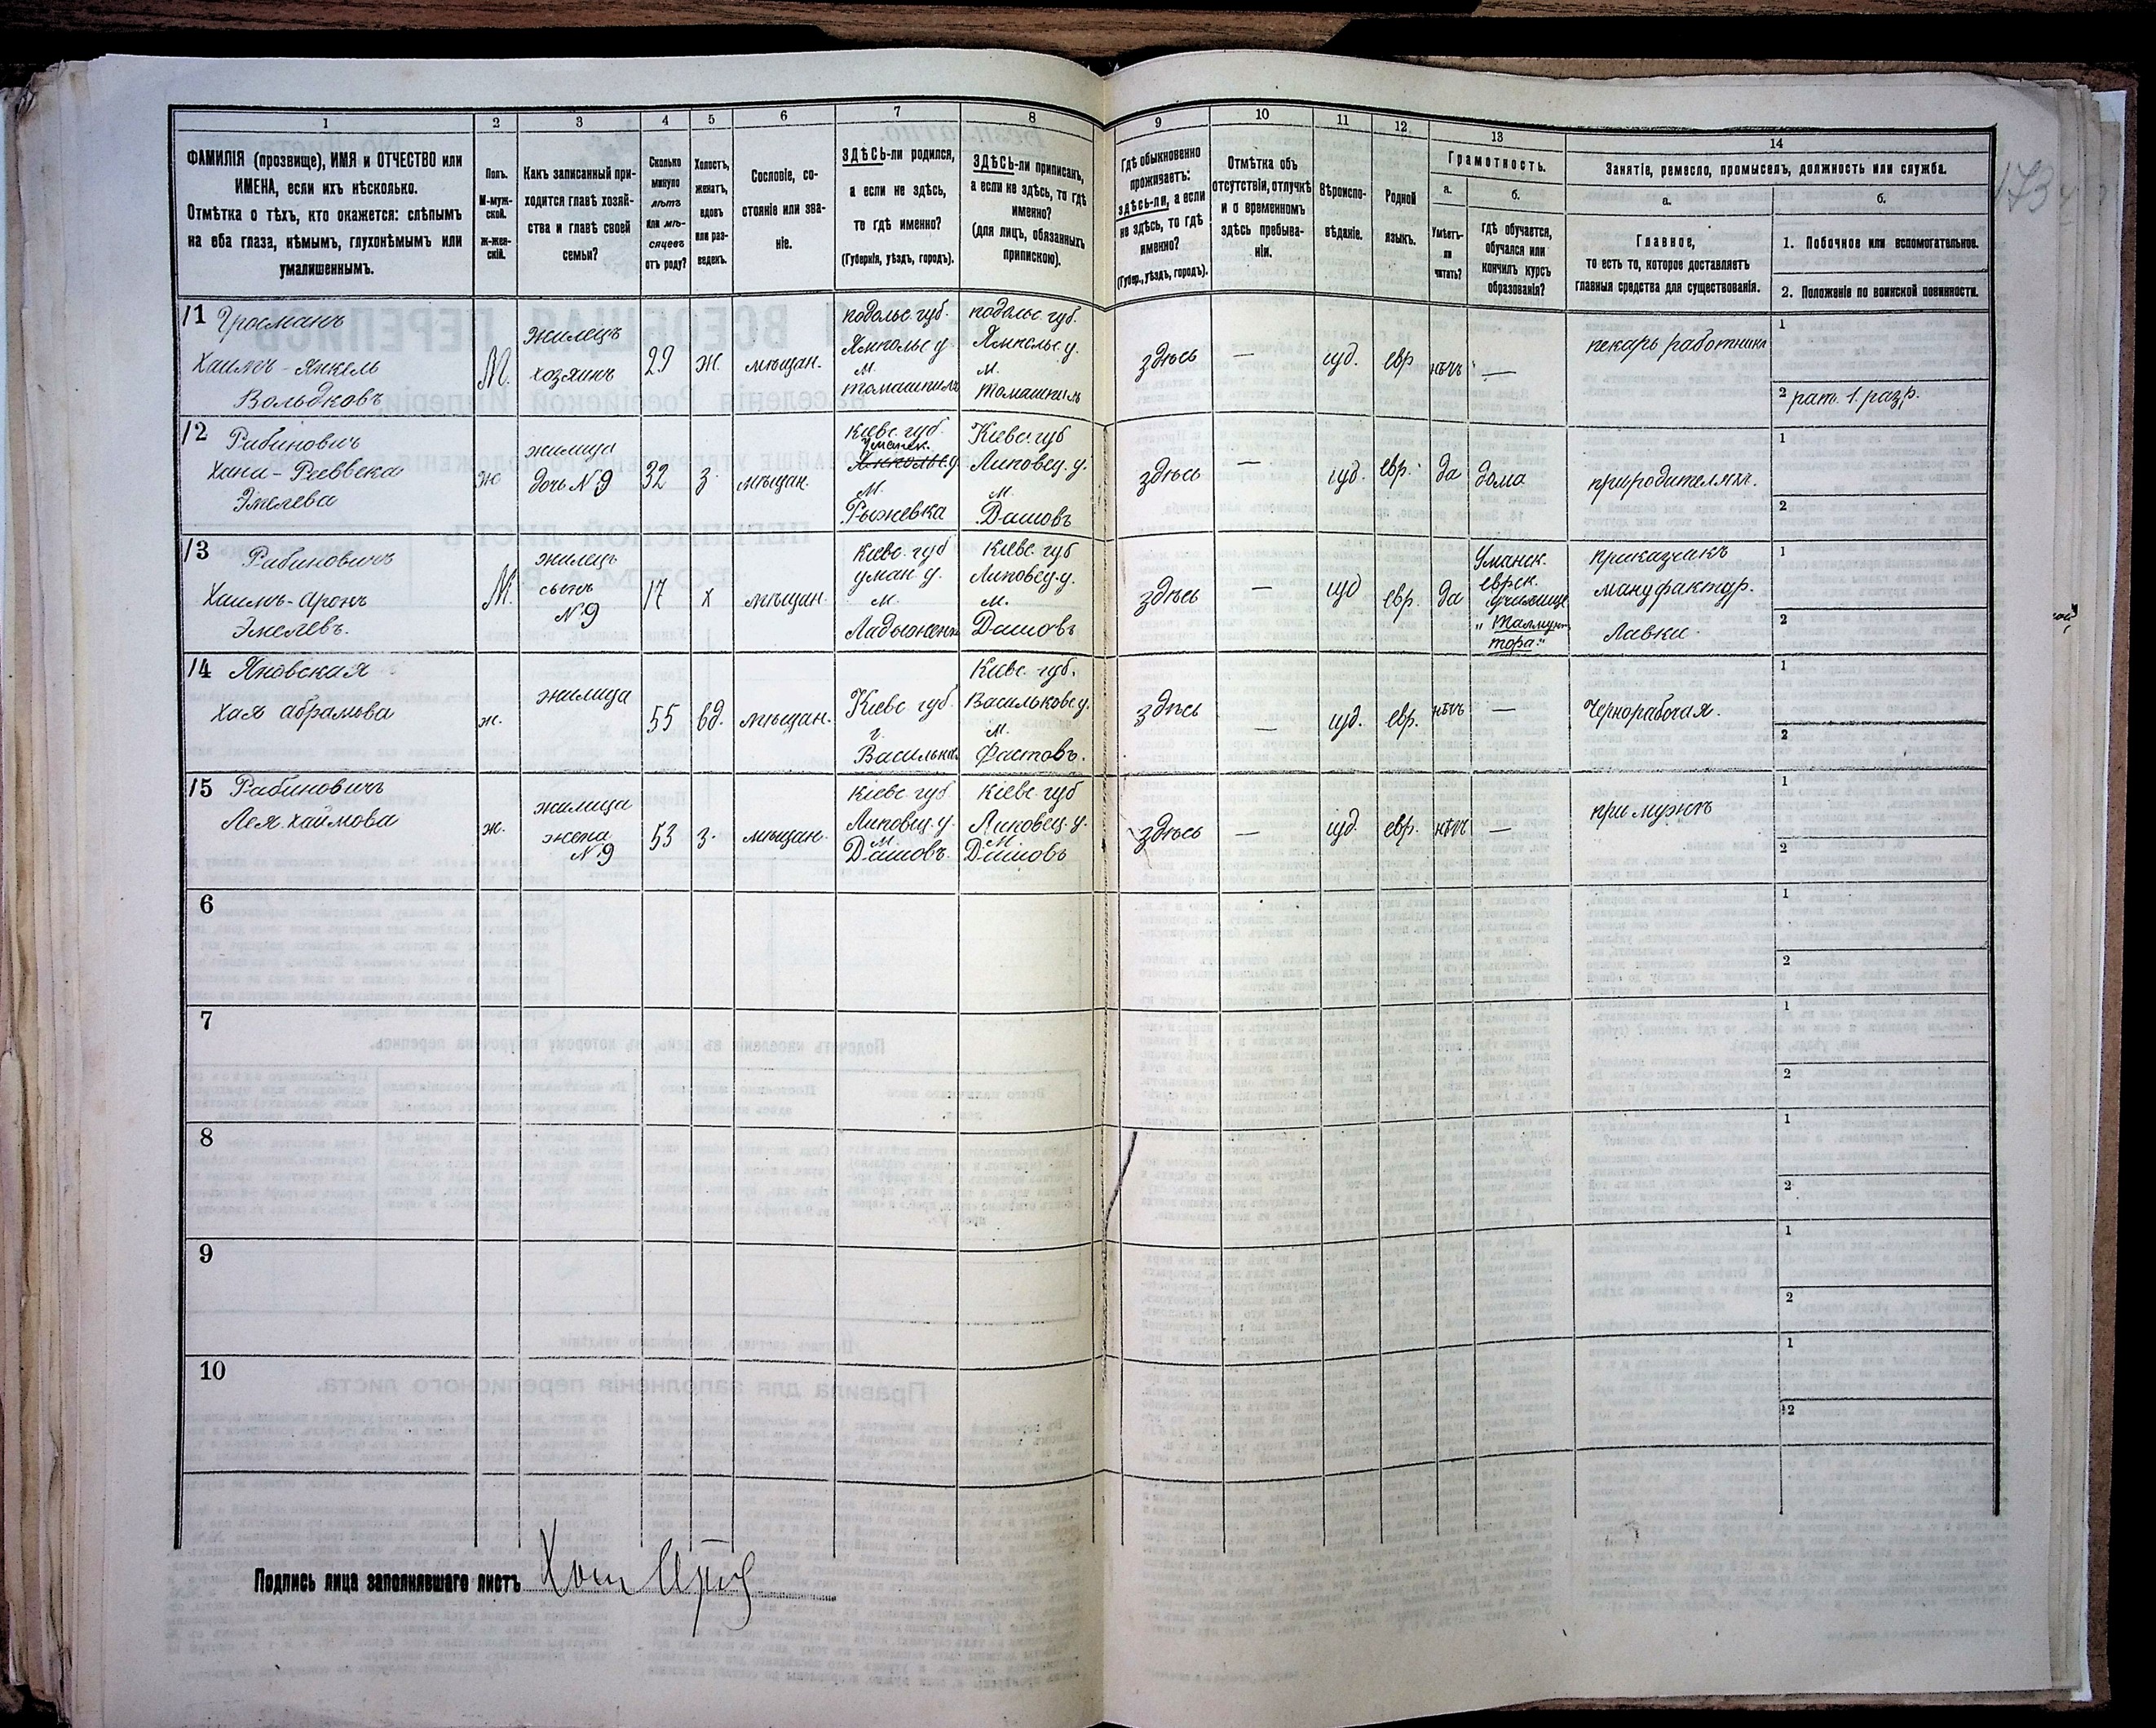 1 2 3 4 5 6 7 8 9 10 11 12 13 14
ФАМИЛІЯ (прозвище), ИМЯ и ОТЧЕСТВО или
ИМЕНА, если ихъ нѣсколько.
Отмѣтка о тѣхъ, кто окажется: слѣпымъ
на оба глаза, нѣмымъ, глухонѣмымъ или
умалишеннымъ.
Полъ.
М-муж-
ской.
ж-жен-
скій.
Какъ записанный при-
ходится главѣ хозяй-
ства и главѣ своей
семьи?
Сколько
минуло
лѣтъ
или мѣ-
сяцевъ
отъ роду?
Холостъ,
женатъ,
вдовъ
или раз-
веденъ.
Сословіе, со-
стояніе или зва-
ніе.
ЗДѢСЬ-ли родился,
а если не здѣсь,
то гдѣ именно?
(Губернія, уѣздъ, городъ).
ЗДѢСЬ-ли приписанъ,
а если не здѣсь, то гдѣ
именно?
(для лицъ, обязанныхъ
припискою).
Гдѣ обыкновенно
проживаетъ:
здѣсь-ли, а если
не здѣсь, то гдѣ
именно?
(Губер., уѣздъ, городъ).
Отмѣтка объ
отсутствіи, отлучкѣ
и о временномъ
здѣсь пребыва-
ніи.
Вѣроиспо-
вѣданіе.
Родной
языкъ.
Грамотность.
а.
Умѣетъ-
ли
читать?
б.
гдѣ обучается,
обучался или
кончилъ курсъ
образованія?
Занятіе, ремесло, промыселъ, должность или служба.
а.
Главное,
то есть то, которое доставляетъ
главныя средства для существованія.
б.
1. Побочное или вспомогательное.
2. Положеніе по воинской повинности.
11 Гросманъ
Хаимъ-Янкель
Вольфковъ
М.
жилецъ
хозяинъ
29
ж.
мѣщан.
подольс. губ.
Ямпольс у.
м.
Томашполь
подольс. губ.
Ямпольс. у.
м.
Томашполь
здѣсь
—
іуд.
евр
нѣтъ
—
пекарь работникъ
1
2 рат. 1. разр.
12 Рабинович
Хани-Раввека
Эмелева
ж
жилица
дочь N 9
32
з.
мѣщан.
Кіевс. губ.
Уманск.
Ямпольс у.
м.
Рыжевка
Кіевс. губ
Липовец. у.
м.
Дашовъ
здѣсь
—
іуд.
евр.
да
дома
при родителяхъ.
1
2
13 Рабиновичъ
Хаимъ-Аронъ
Эмелевъ.
М.
жилецъ
сынъ
N 9
17
х
мѣщан.
Кіевс. губ
уман. у.
м.
Ладыженка
Кіевс. губ
Липовец. у.
м.
Дашовъ
здѣсь
—
іуд
евр.
да
Уманск.
еврск.
училище
"Талмут
тора."
приказчикъ
мануфактур.
Лавки.
1
2
14 Яновская
Хая Абрамова
ж.
жилица
55
вд.
мѣщан.
Кіевс губ.
г.
Васильков
Кіевс. губ.
Васильковс у.
м.
Фастовъ.
здѣсь
—
іуд.
евр.
нѣтъ
—
Чернорабочая.
1
2
15 Рабиновичъ
Лея Хаймова
ж.
жилица
жена
N 9
53
з.
мѣщан.
Кіевс. губ
Липовец. у.
м.
Дашовъ.
Кіевс. губ
Липовец. у.
м.
Дашовъ
здѣсь
—
іуд.
евр.
нѣтъ
—
при мужѣ
1
2
6
1
2
7
1
2
8
1
2
9
1
2
10
1
2
Подпись лица заполнявшаго листъ